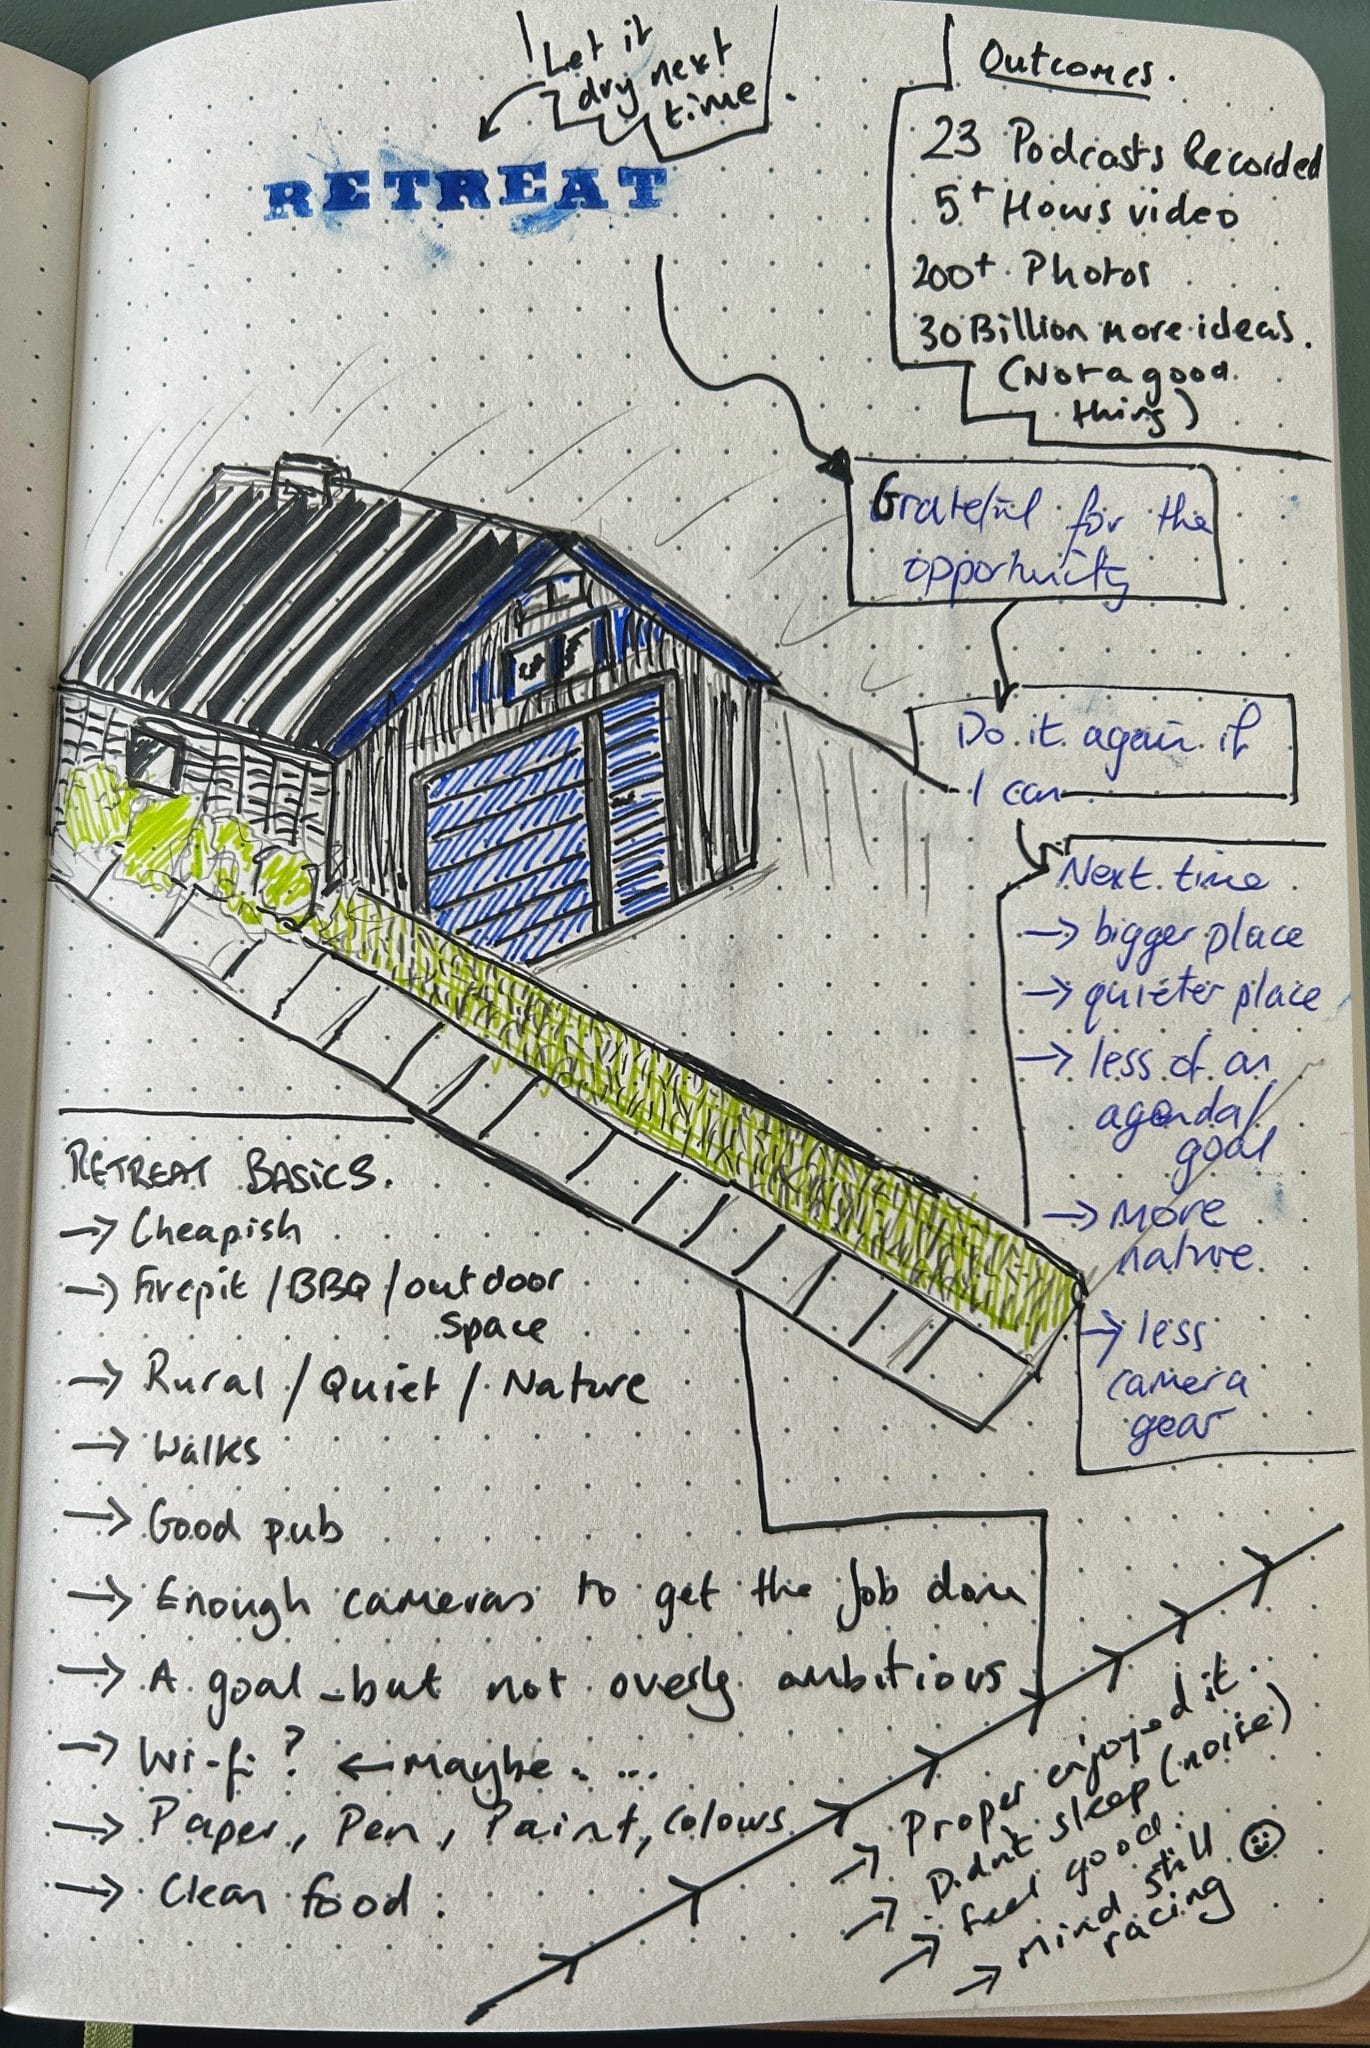 Let it
dry next
time.
RETREAT
Outcomes.
23 Podcasts Recorded
5+ Hours video
200+ Photos
30 Billion more ideas.
(Not a good
thing)
Grateful for the
opportunity
Do it again if
I can
Next time
→ bigger place
→ quieter place
→ less of an
agenda/
goal
→ more
nature
→ less
camera
gear
RETREAT BASICS.
→ Cheapish
→ Firepit / BBQ / outdoor
space
→ Rural / Quiet / Nature
→ Walks
→ Good pub
→ Enough cameras to get the job done
→ A goal - but not overly ambitious
→ Wi-fi? ← Maybe....
→ Paper, Pen, Paint, colours
→ Clean food.
→ Proper enjoyed it.
→ Didnt sleep (noise)
→ feel good.
→ Mind still
racing ☺